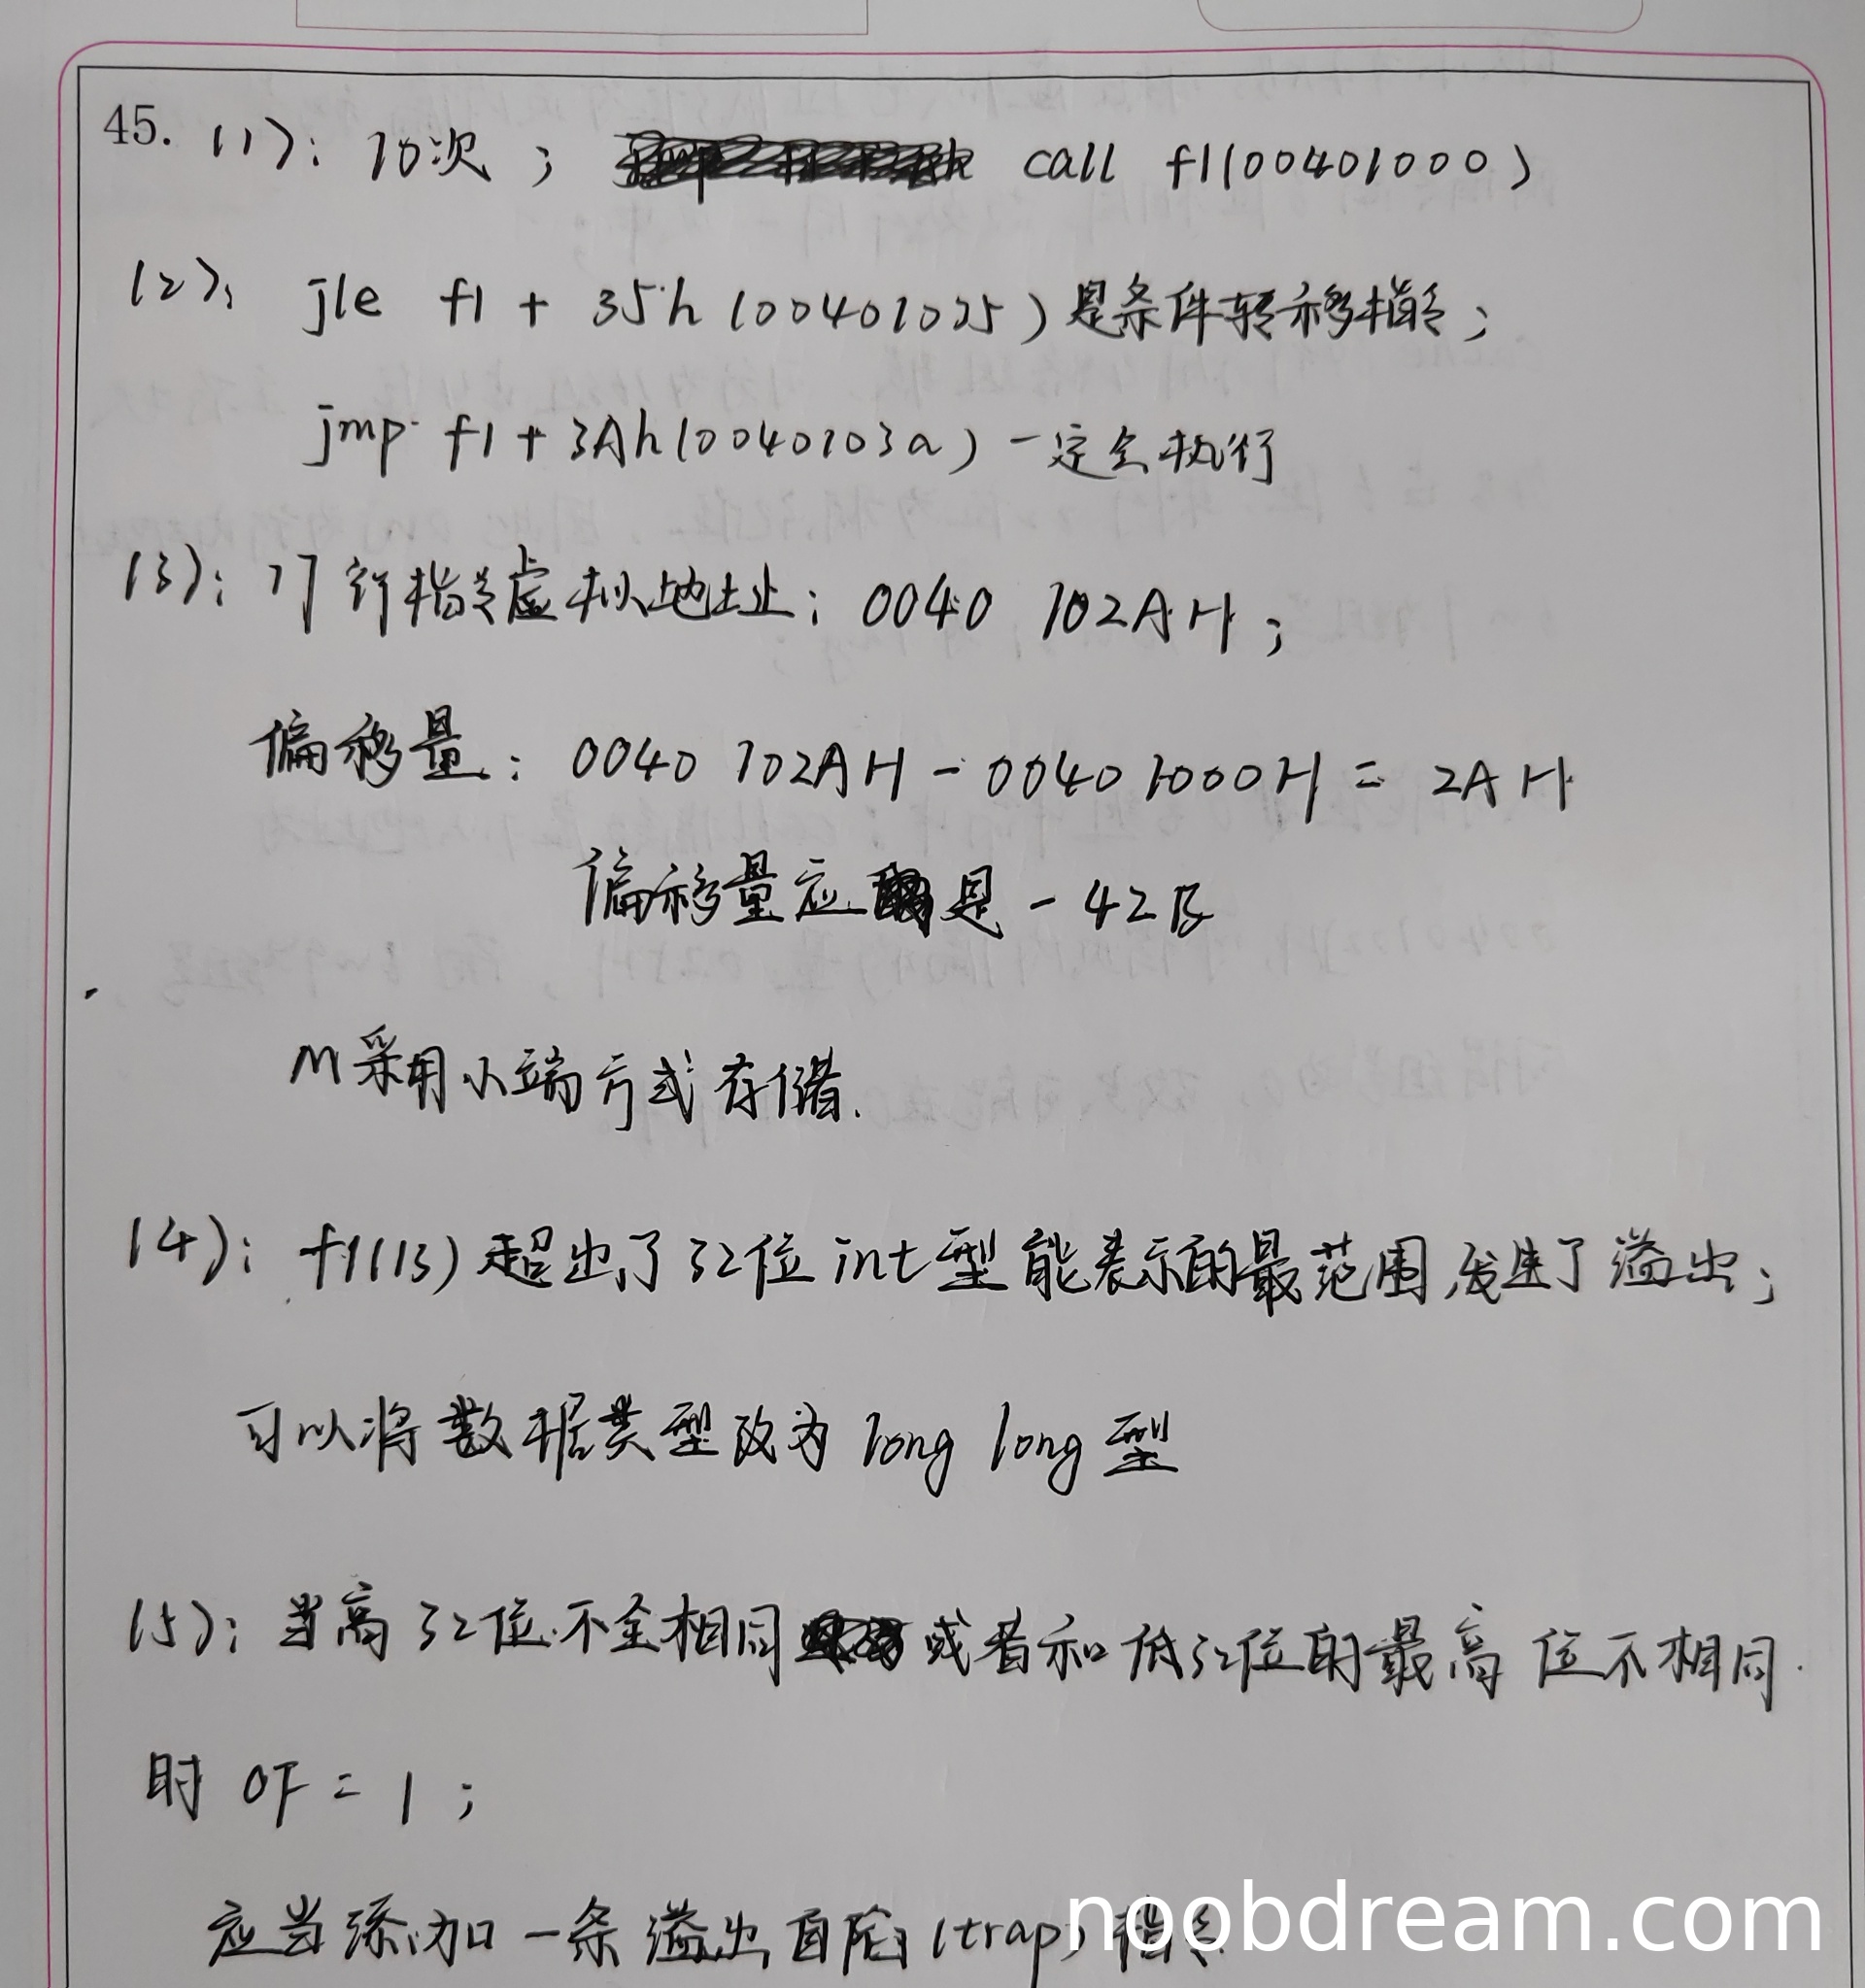 45. (1): 10次; call f1(00401000)
(2): jle f1 + 35h (00401035) 是条件转移指令;
jmp f1 + 3Ah(0040103a) 一定会执行
(3): 17行指令虚拟地址: 0040 102AH;
偏移量: 0040 102AH - 0040 1000H = 2AH
偏移量应是 - 42B
M采用小端方式存储.
(4): f1(13) 超出了32位 int 型能表示的最范围,发生了溢出;
可以将数据类型改为 long long 型
(5): 当高32位不全相同或者和低32位的最高位不相同
时 OF = 1;
应当添加一条溢出自陷(trap)指令
noobdream.com